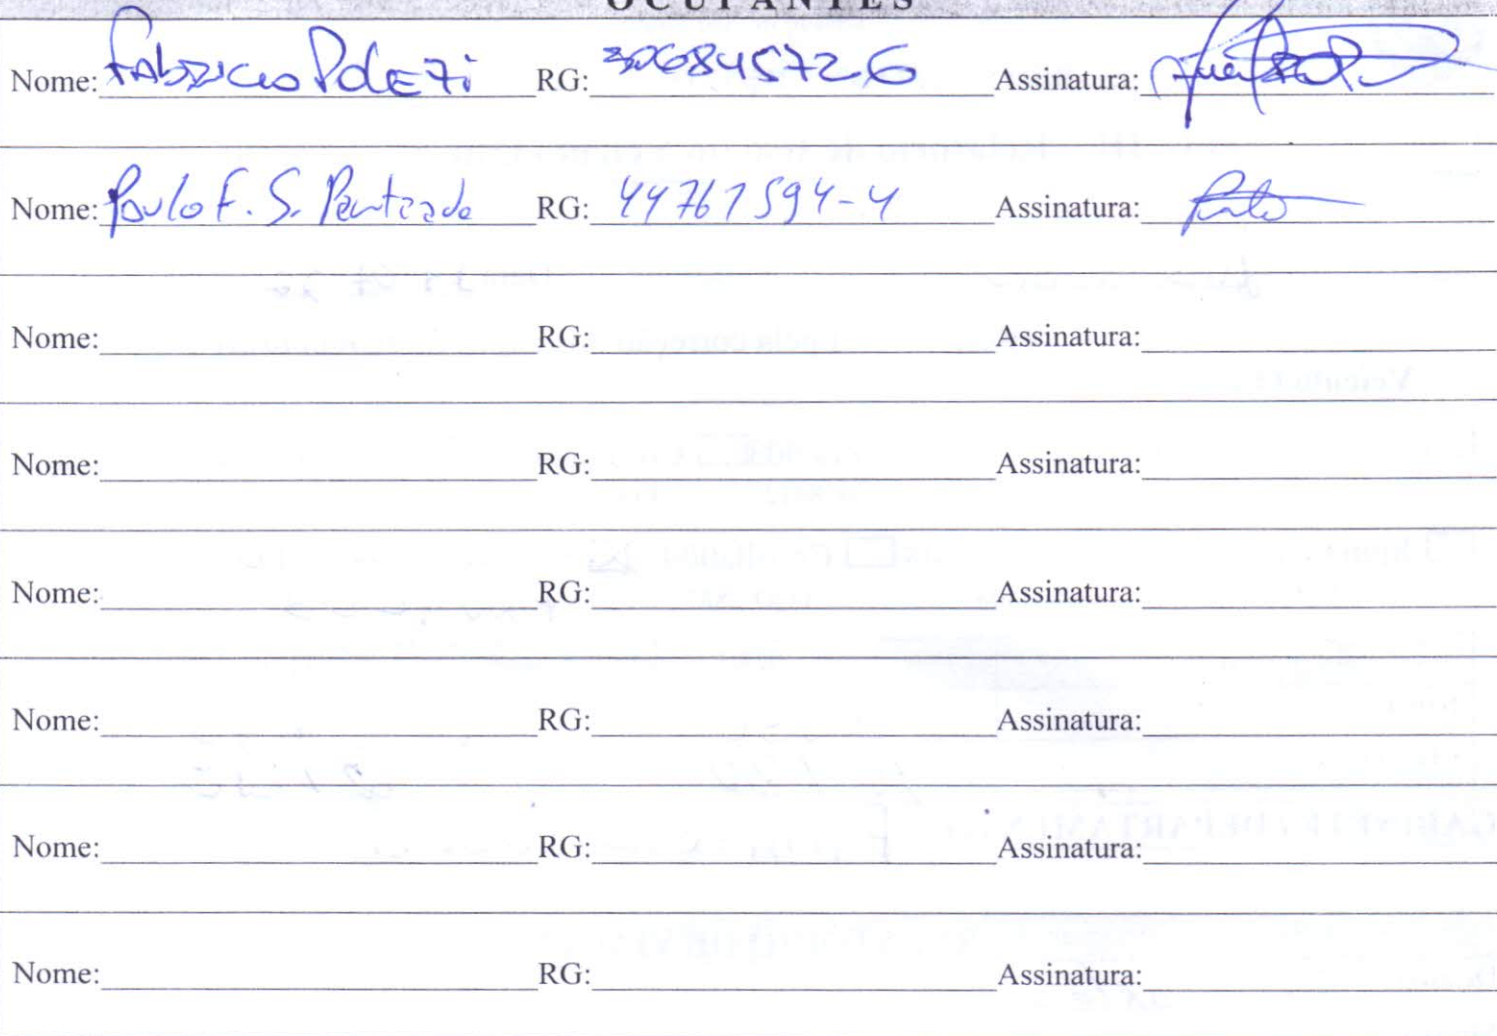 OCUPANTES
Nome: Fabricio Poleti RG: 306845726 Assinatura:
Nome: Paulo F. S. Penteado RG: 44761594-4 Assinatura:
Nome: RG: Assinatura:
Nome: RG: Assinatura:
Nome: RG: Assinatura:
Nome: RG: Assinatura:
Nome: RG: Assinatura:
Nome: RG: Assinatura: